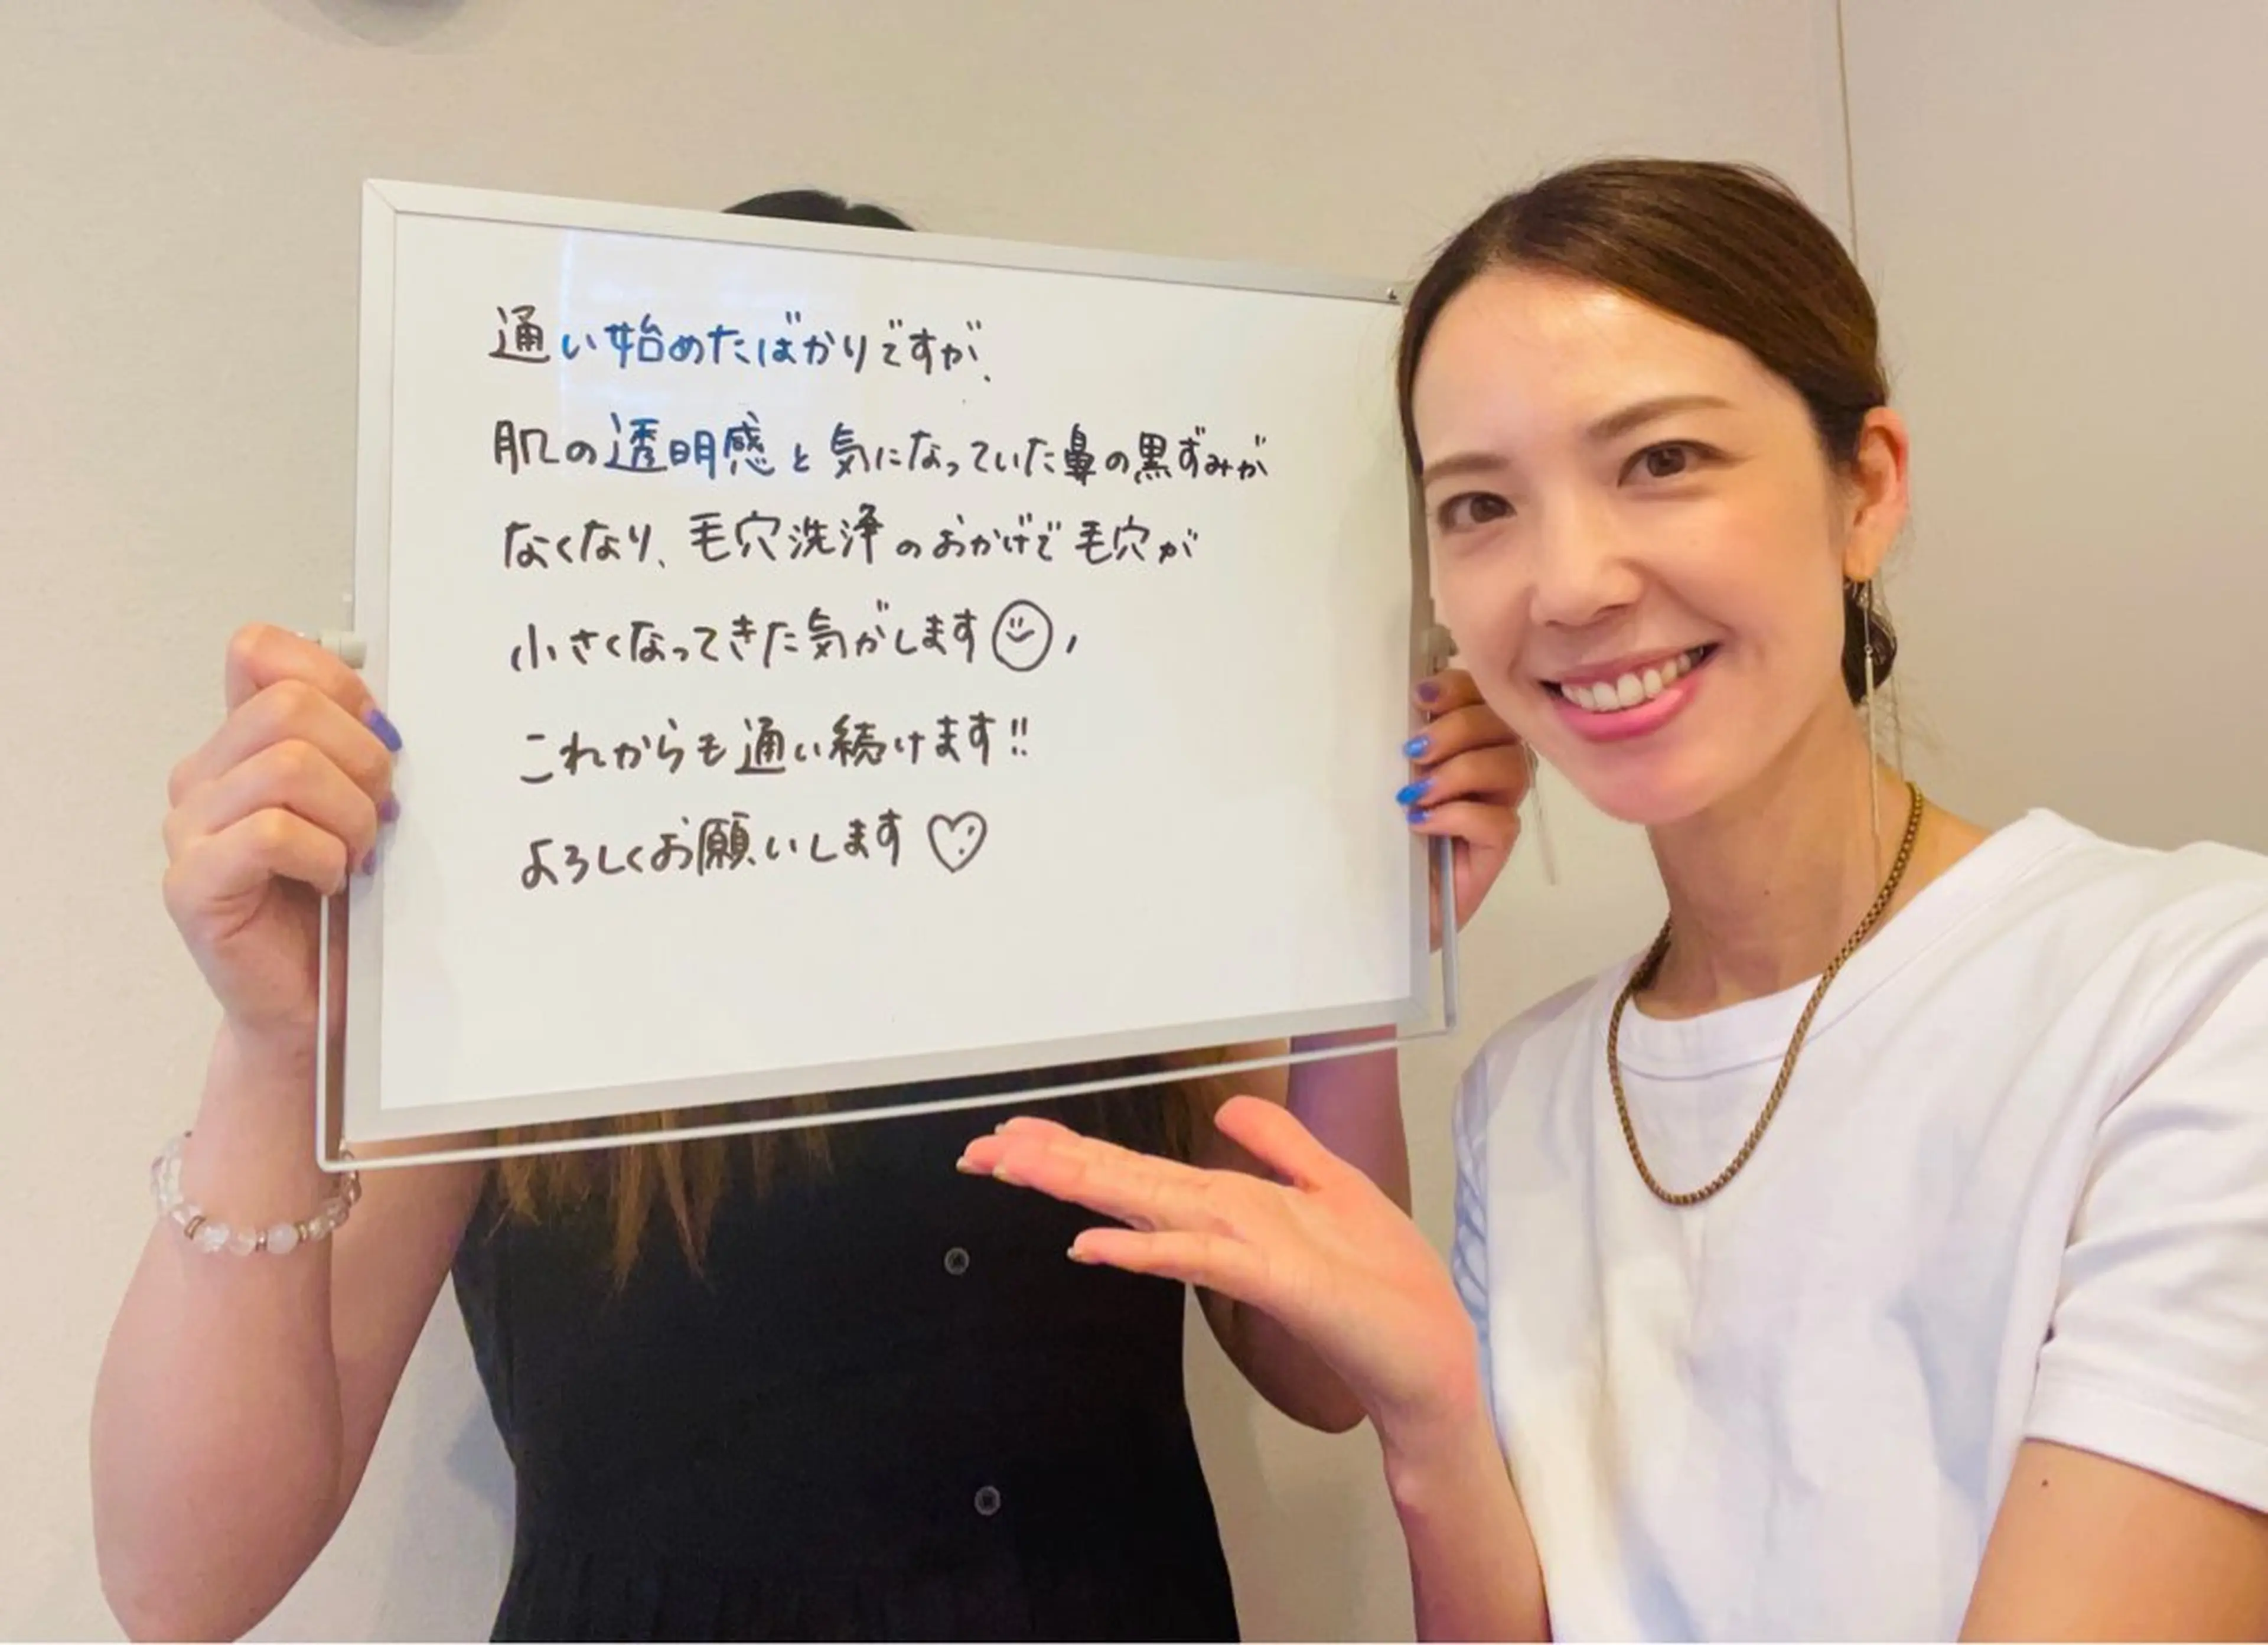 通い始めたばかりですが、
肌の透明感と気になっていた鼻の黒ずみが
なくなり、毛穴洗浄のおかげで毛穴が
小さくなってきた気がします☺,
これからも通い続けます!!
よろしくお願いします♡